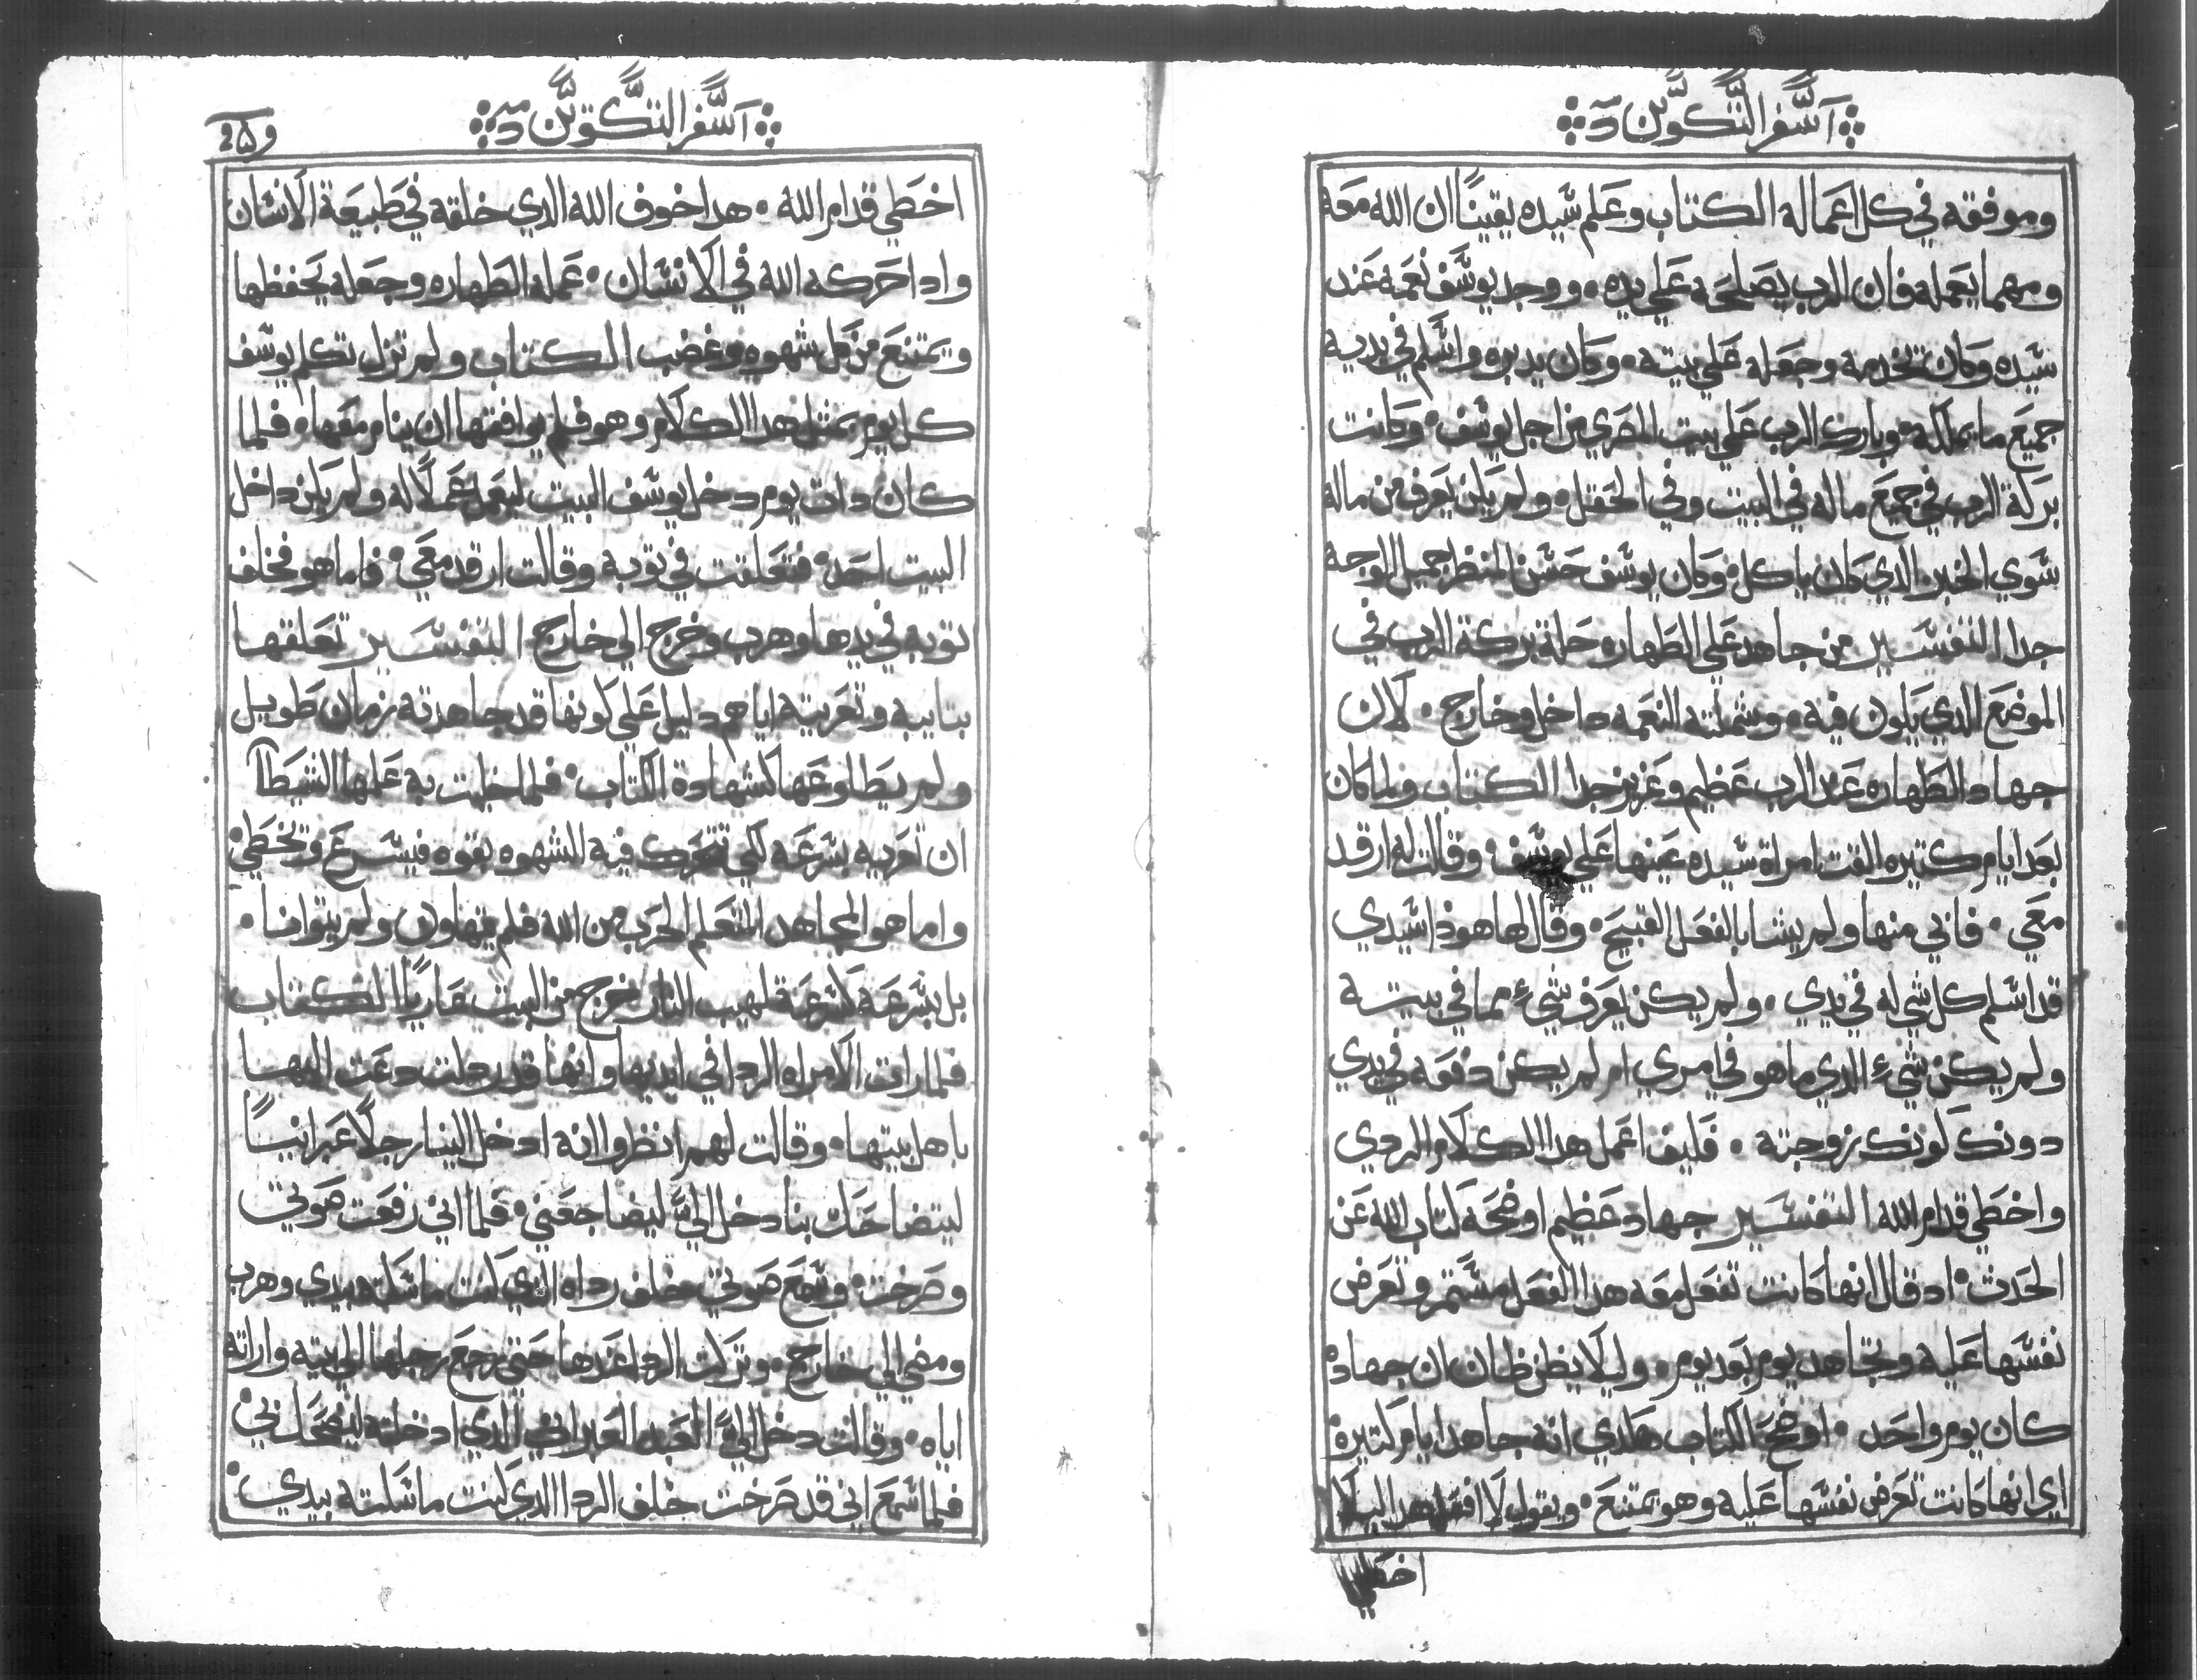 السفر التكوين
وموفقه في كل اعماله الكتاب وعلم سيده يقينًا ان الله معه
ومهما يعمله فان الرب يصلحه علي يده. ووجد يوسف نعمه عند
سيده وكان يخدمه وجعله علي بيته. وكان يدبره واسلم في يديه
جميع ما يملكه. وبارك الرب علي بيت المصري من اجل يوسف. وكانت
بركة الرب في جميع ماله في البيت وفي الحقل. ولم يكن يعرف من ماله
سوي الخبز الذي كان ياكل. وكان يوسف حسن المنظر جميل الوجه
جدا التفسير من جاهد علي الطهاره حلة بركة الرب في
الموضع الدي يكون فيه. وشملته النعمه داخل وخارج. لان
جهاد الطهاره عند الرب عظيم وعزيز جدا الكتاب ولما كان
بعد ايام كتيره القت امراة سيده عينها علي يوسف. وقالت له ارقد
معي. فابي منها ولم يشا بالفعل القبيح. وقال لها هودا سيدي
قد اسلم كل شي له في يدي. ولم يكن يعرف شيء مما في بيته
ولم يكن شيء الدي ما هو في امري ام لم يكن دفعه في يدي
دونك لونك زوجته. فكيف اعمل هدا الكلام الردي
واخطي قدام الله التفسير جهاد عظيم اوضحه كتاب الله عن
الحدث. اد قال انها كانت تفعل معه هدا الفعل مستمر وتعرض
نفسها عليه وتجاهد يوم بعد يوم. وليلا يظن ظان ان جهاده
كان يوم واحد. اوضح الكتاب هكدي انه جاهد ايام كتيره
اي انها كانت تعرض نفسها عليه وهو يمتنع. ويقول لا افعل هدا ليلا
اخطي
السفر التكوين
اخطي قدام الله. هدا خوف الله الدي خلقه في طبيعة الانسان
وادا حركه الله في الانسان. عمله الطهاره وجعله يحفظها
ويمتنع من كل شهوه وغضب الكتاب ولم تزل تكلم يوسف
كل يوم بمثل هدا الكلام وهو فلم يوافقها ان ينام معها. فلما
كان دات يوم دخل يوسف البيت ليعمل عملًا له ولم يكن داخل
البيت احد. فتعلقت في توبه وقالت ارقد معي. فاما هو فخلف
توبه في يدها وهرب وخرج الي خارج التفسير تعلقها
بتابيه وتعريته اياهم دليل علي كونها قد جاهدته زمان طويل
ولم يطاوعها كشهادة الكتاب. فلما خلت به علمها الشيطان
ان تعريه بسرعه لكي تتحرك فيه الشهوه بقوه فيسرع ويخطي
واما هو المجاهد المتعلم الحرب من الله فلم يتهاون ولم يتوانا.
بل بسرعه كسرعة لهيب النار خرج من البيت عاريًا الكتاب
فلما رات الامراه الردا في ايديها وانها قد ردلت دعت اليها
باهل بيتها. وقالت لهم انظروا انه ادخل الينا رجلًا عبرانيًا
ليتضاحك بنا دخل اليَّ ليضاجعني. فلما اني رفعت صوتي
وصرخت. وسمع صوتي خلف رداه الدي كنت ماسكته بيدي وهرب
ومضي الي خارج. وتركت الردا عندها حتي رجع رجلها الي بيته واراته
اياه. وقالت دخل اليَّ العبد العبراني الدي ادخلته ليضحك بي
فلما سمع اني قد صرخت خلف الردا الدي كنت ماسكته بيدي.